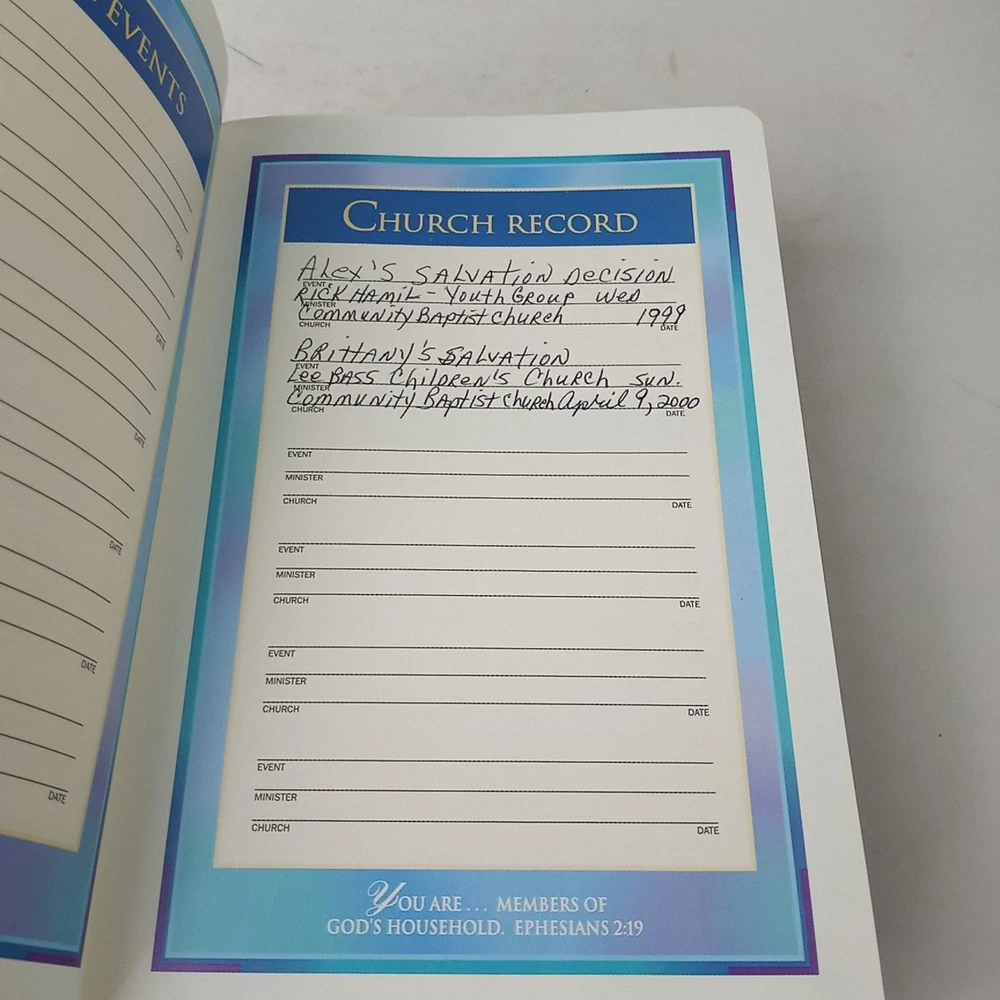 EVENTS
DATE
DATE
DATE
DATE
DATE
DATE
CHURCH RECORD
Alex's SALVATION DECISION
EVENT
RICK HAMIL - Youth Group Wed
MINISTER
Community Baptist Church 1999
CHURCH DATE
BRITTANY'S SALVATION
EVENT
Lee BASS Children's Church SUN.
MINISTER
Community Baptist Church April 9, 2000
CHURCH DATE
EVENT
MINISTER
CHURCH DATE
EVENT
MINISTER
CHURCH DATE
EVENT
MINISTER
CHURCH DATE
EVENT
MINISTER
CHURCH DATE
YOU ARE... MEMBERS OF
GOD'S HOUSEHOLD. EPHESIANS 2:19